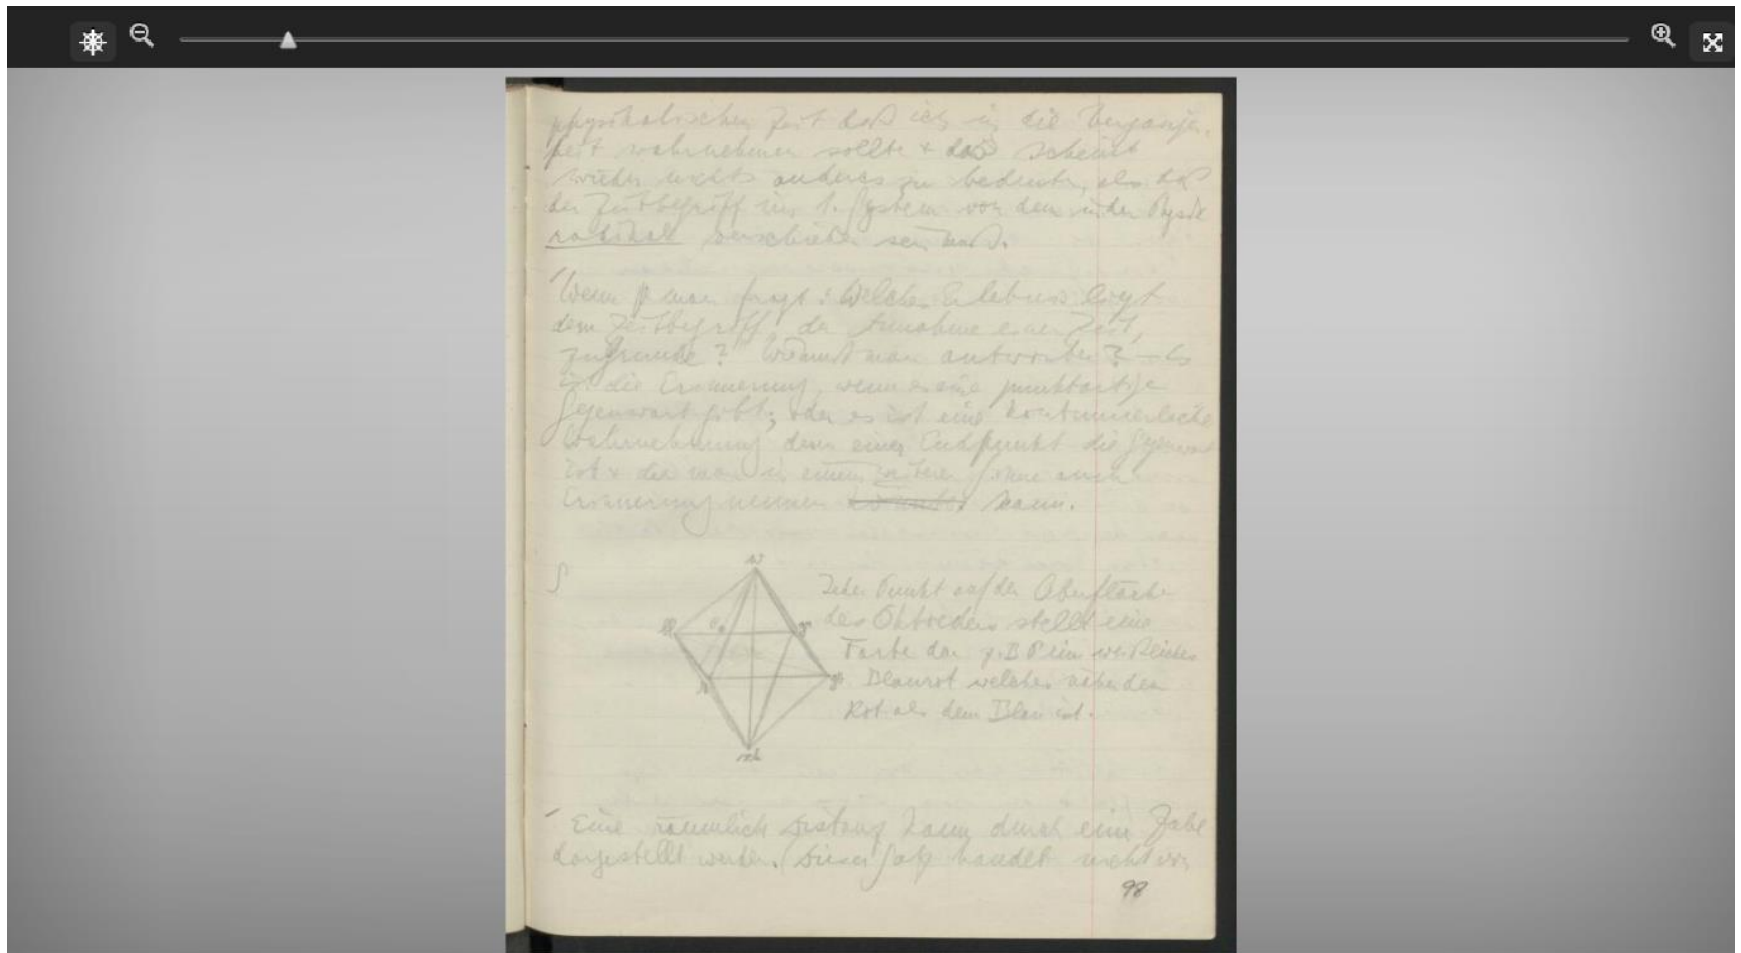 physikalischen Zeit daß ich in die Vergangen-
heit wahrnehmen sollte + das scheint
wieder nichts anderes zu bedeuten, als daß
der Zeitbegriff im 1. System von dem in der Physik
radikal verschieden sein muß.
/ Wenn man fragt: Welches Erlebnis liegt
dem Zeitbegriff, der Annahme einer Zeit,
zugrunde? man antworten?
die Erinnerung, wenn es eine punktartige
Gegenwart gibt; oder es ist eine kontinuierliche
Wahrnehmung deren einer Endpunkt die Gegenwart
ist + die man in einem Sinne auch
Erinnerung nennen kann.
∫
W
Jeder Punkt auf der Oberfläche
des Oktaeders stellt eine
Farbe dar z.B P ein weißliches
Blaurot welches näher dem
Rot als dem Blau ist.
/ Eine räumliche Distanz kann durch eine Zahl
dargestellt werden. Dieser Satz handelt nicht von
98